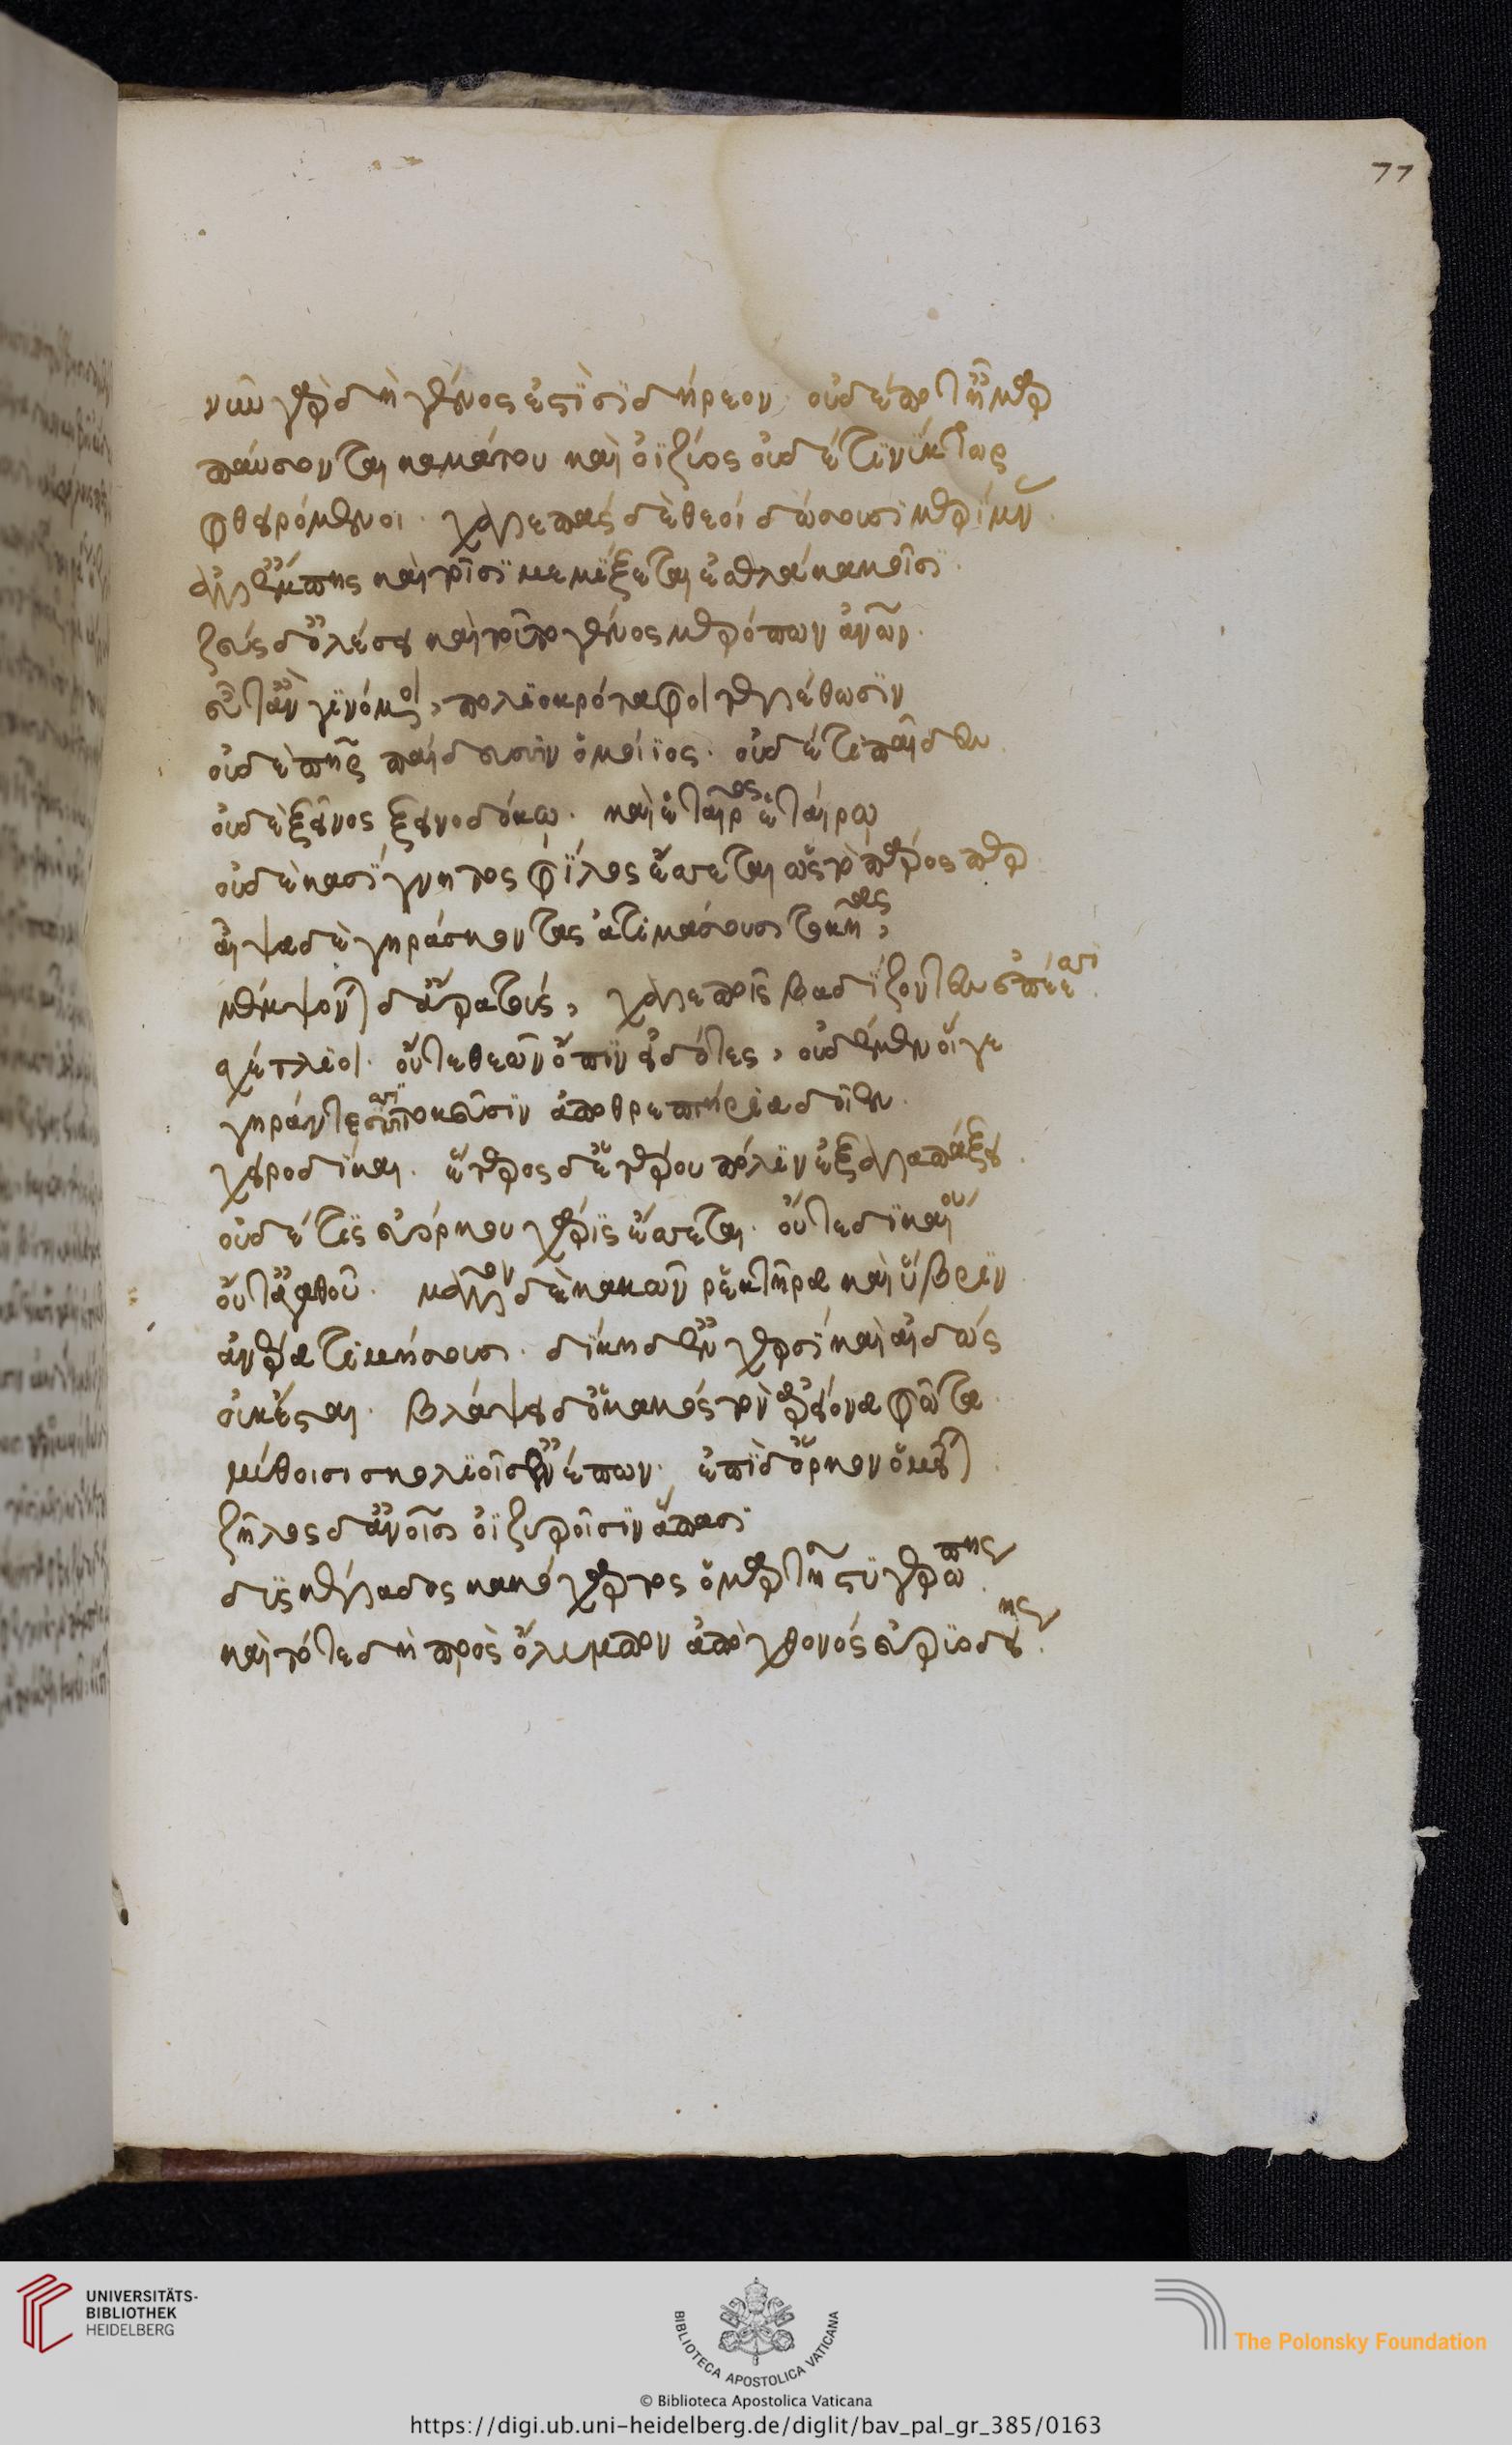 77
νῦν γὰρ δὴ γένος ἐστὶ σιδήρεον· οὐδέποτ' ἦμαρ
παύσονται καμάτου καὶ ὀϊζύος οὐδέ τι νύκτωρ
φθειρόμενοι· χαλεπάς δὲ θεοί δώσουσι μερίμνας
ἀλλ' ἔμπης καὶ τοῖσι μεμίξεται ἐσθλά κακοῖσι·
ζεύς δ' ὀλέσει καὶ τοῦτο γένος μερόπων ἀνων·
εὖτ' ἂν γεινόμενοι, πολιοκρόταφοι τελέθωσιν
οὐδὲ πηρ παίδεσσιν ὁμοίϊος· οὐδέ τι παῖδες
οὐδὲ ξεῖνος ξεινοδόκω· καὶ ἑταῖρος ἑταίρω
οὐδὲ κασίγνητος φίλος ἔσσεται ὡς τὸ πάρος περ
αἶψα δὲ γηράσκοντας ἀτιμάσουσι τοκῆας,
μέμψονται δ' ἄρα τούς, χαλεποῖς βαδίζοντες ἐπέεσσι·
σχέτλιοι· οὔτε θεῶν ὄπιν εἰδότες, οὐδὲ μὲν οἵγε
γηράντεσσι τοκεῦσιν ἀπο θρεπτήρια δοῖεν·
χειροδίκαι· ἕτερος δ' ἑτέρου πόλιν ἐξαλαπάξει·
οὐδέ τις εὐόρκου χάρις ἔσσεται· οὔτε δικαίου
οὔτ' ἀγαθοῦ· μᾶλλον δὲ κακῶν ῥεκτῆρα καὶ ὕβριν
ἀνέρα τιμήσουσι· δίκη δ' ἐν χερσί καὶ αἰδώς
οὐκ ἔσται· βλάψει δ' ὁ κακός τὸν ἀρείονα φῶτα·
μύθοισι σκολιοῖς ἐνέπων· ἐπὶ δ' ὅρκον ὀμεῖται
ζῆλος δ' ἀνοις ὀϊζυροῖσιν ἅπασι
δυσκέλαδος κακόχαρτος ὁμαρτήσει στυγερώπης·
καὶ τότε δὴ πρὸς ὄλυμπον ἀπὸ χθονός εὐρυοδείης·
UNIVERSITÄTS-
BIBLIOTHEK
HEIDELBERG
BIBLIOTECA APOSTOLICA VATICANA
The Polonsky Foundation
© Biblioteca Apostolica Vaticana
https://digi.ub.uni-heidelberg.de/diglit/bav_pal_gr_385/0163